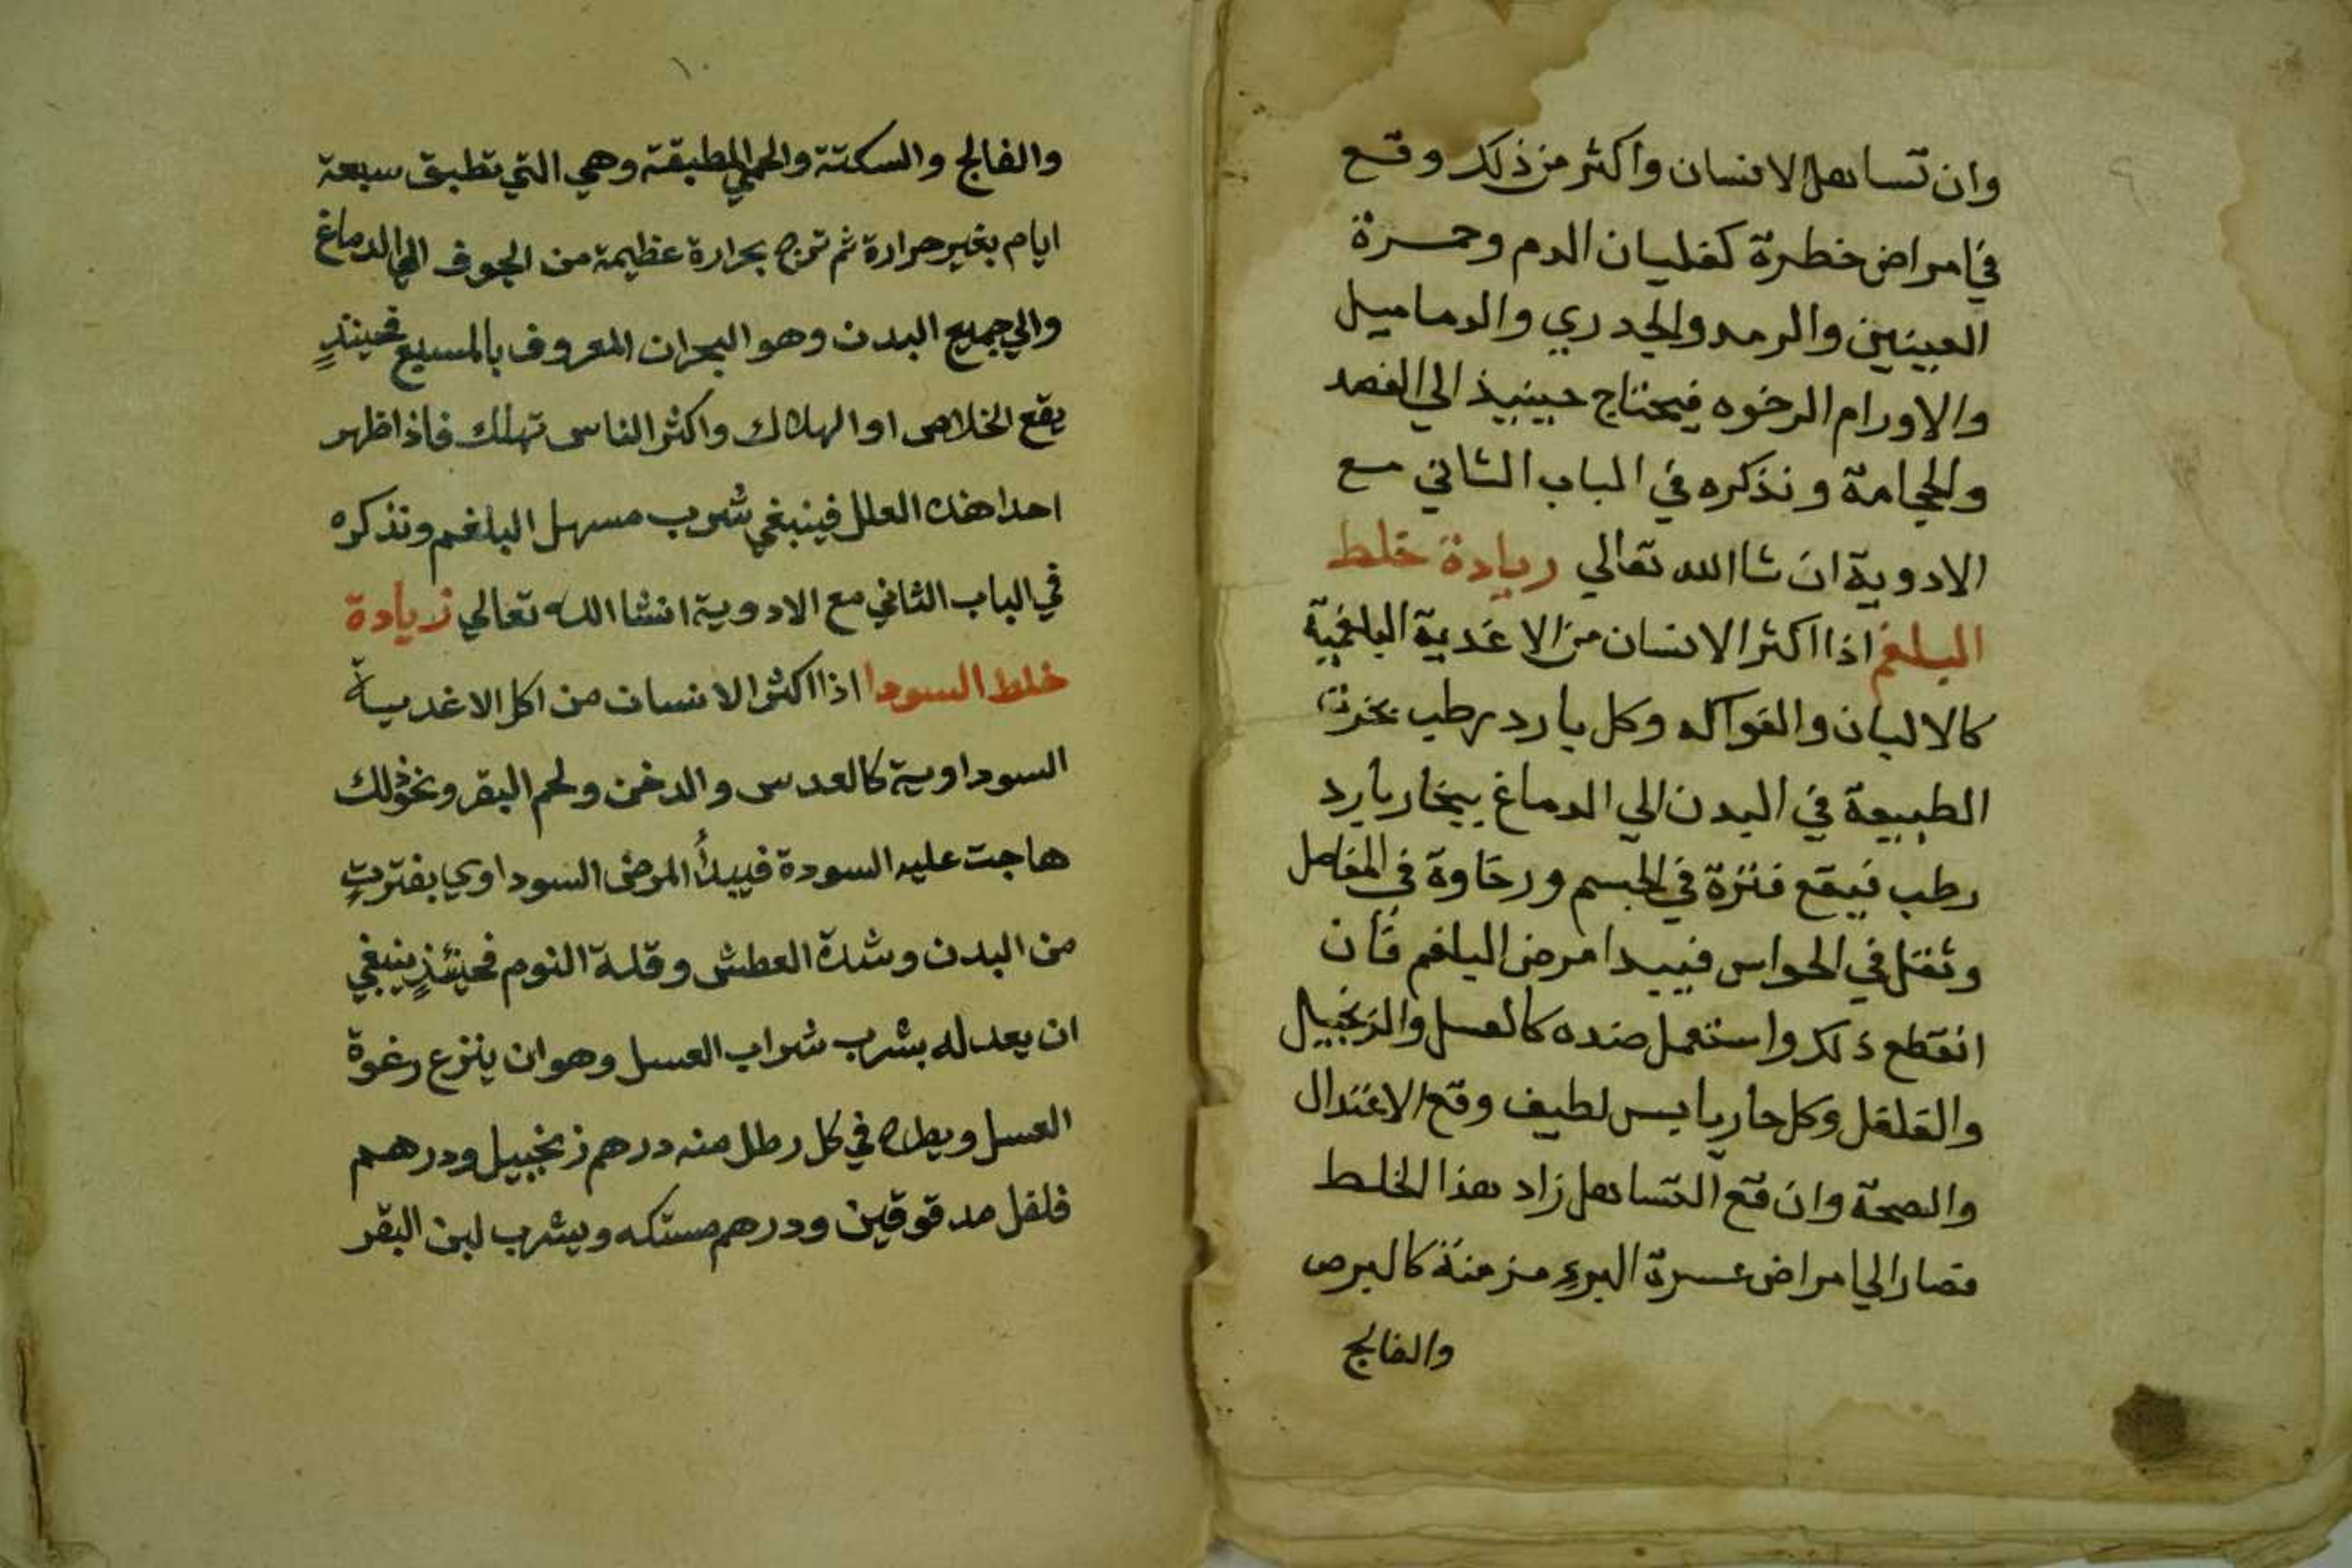 ٩
وان تساهل الانسان واكثر من ذلك وقع
في امراض خطرة كغليان الدم وحمرة
العينين والرمد والجدري والدماميل
والاورام الرخوه فيحتاج حينيذ الي الفصد
والحجامة ونذكره في الباب الثاني مع
الادوية ان شا الله تعالي ريادة خلط
البلغم اذا اكثر الانسان من الاغدية البلغمية
كالالبان والفواكه وكل بارد رطب بخرت
الطبيعة في البدن الي الدماغ ببخار بارد
رطب فيقع فترة في الجسم ورخاوة في المفاصل
وثقل في الحواس فيبدا مرض البلغم فأن
انقطع ذلك واستعمل ضده كالعسل والزنجبيل
والفلفل وكل حار يابس لطيف وقع الاعتدال
والصحة وان قع التساهل زاد هذا الخلط
فصار الي امراض عسرة البرء مزمنة كالبرص
والفالج
١٠
والفالج والسكتة والحمي المطبقة وهي التي تطبق سبعة
ايام بغير حرارة ثم تزح بحرارة عظيمة من الجوف الي الدماغ
والي جميع البدن وهو البحران المعروف بالمسبع فحينئذٍ
يقع الخلاص او الهلاك واكثر الناس تهلك فاذا ظهر
احدا هذه العلل فينبغي شرب مسهل البلغم ونذكره
في الباب الثاني مع الادوية انشا الله تعالي زيادة
خلط السودا اذا اكثر الانسان من اكل الاغدية
السوداوية كالعدس والدخن ولحم البقر ونحو ذلك
هاجت عليه السودة فيبدأ المرض السوداوي بفترتٍ
من البدن وشدة العطش وقلة النوم فحينئذٍ ينبغي
ان يعدله بشرب شراب العسل وهو ان ينزع رغوة
العسل ويطرح في كل رطل منه درهم زنجبيل ودرهم
فلفل مدقوقين ودرهم مستكه ويشرب لبن البقر